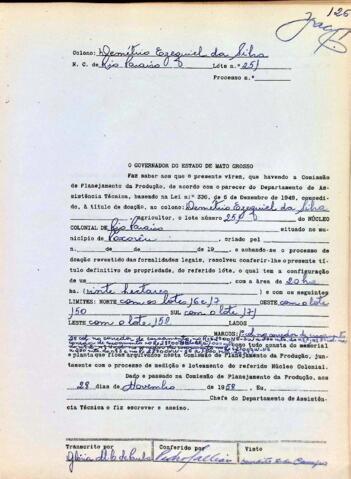 126
Colono: Demétrio Ezequiel da Silva
N. C. de Rio Paraiso Lóte n.º 251
Processo n.º
O GOVERNADOR DO ESTADO DE MATO GROSSO
Faz saber aos que o presente virem, que havendo a Comissão
de Planejamento da Produção, de acordo com o parecer do Departamento de As-
sistência Técnica, baseado na Lei n.º 336, de 6 de Dezembro de 1949, concedi-
do, à título de doação, ao colono Demétrio Ezequiel da Silva
Agricultor, o lote número 251 do NÚCLEO
COLONIAL DE Rio Paraiso situado no mu-
nicípio de Poxoréu, criado pel
n.º de de de 19 , e achando-se o processo de
doação revestido das formalidades legais, resolveu conferir-lhe o presente
título definitivo de propriedade, do referido lóte, o qual tem a configuração
de um com a área de 20
ha. (vinte hectares) e com os seguintes
LIMITES: NORTE com os lotes 16 e 17 OESTE com o lote
150 SUL com o lote 171
LESTE com o lote, 158 LADOS
MARCOS:
tudo consta do memorial
e planta que ficam arquivados nesta Comissão de Planejamento da Produção,
juntamente com o processo de medição e loteamento do referido Núcleo Colonial.
Dado e passado na Comissão de Planejamento da Produção, aos
28 dias de Novembro de 1958. Eu,
Chefe do Departamento de Assistên-
cia Técnica o fiz escrever e assino.
Transcrito por Conferido por Visto